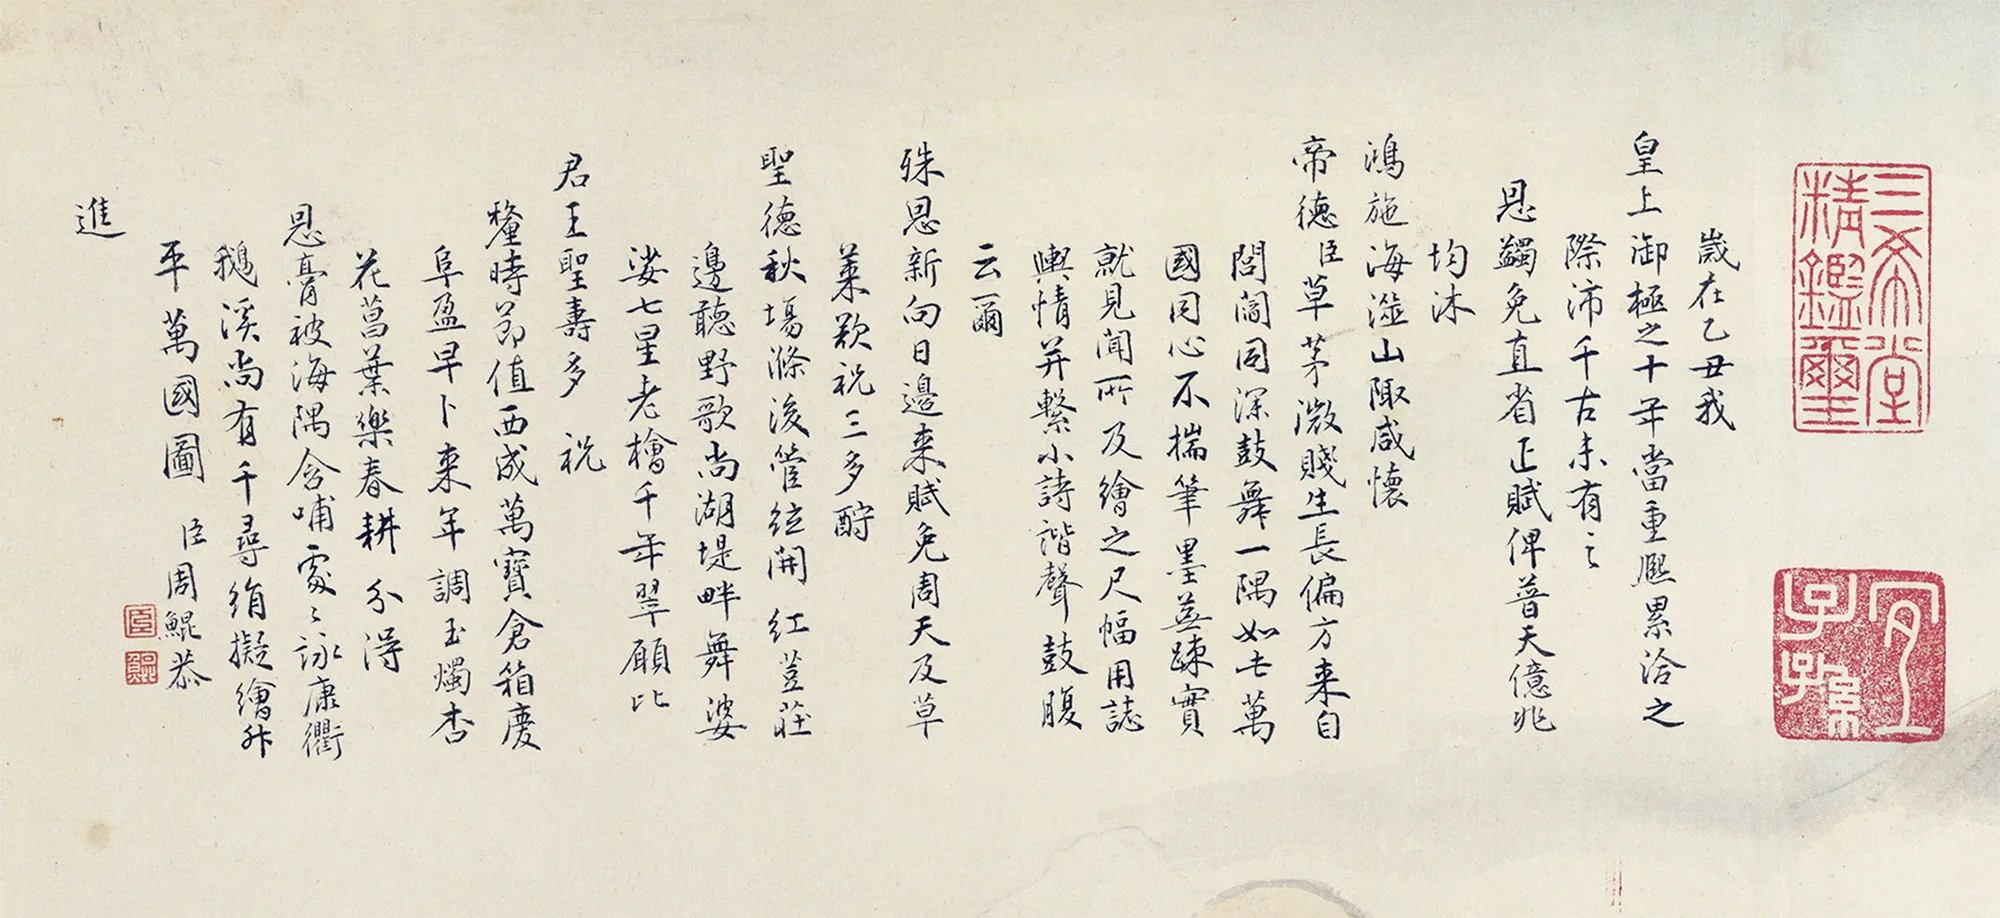 三希堂
精鑑璽
宜子孫
歲在乙丑我
皇上御極之十年當重熈累洽之
際沛千古未有之
恩蠲免直省正賦俾普天億兆
均沐
鴻施海澨山陬咸懷
帝德臣草茅微賤生長偏方来自
閭閻同深鼓舞一隅如此萬
國同心不揣筆墨蕪踈實
就見聞所及繪之尺幅用誌
輿情并繫小詩諧聲鼓腹
云爾
殊恩新向日邊来賦免周天及草
萊歡祝三多酧
聖德秋塲滌後管絃開 紅荳莊
邊聽野歌尚湖堤畔舞婆
娑七星老檜千年翠願比
君王聖壽多 祝
釐時節值西成萬寶倉箱慶
阜盈早卜来年調玉燭杏
花菖葉樂春耕 分得
恩膏被海隅含哺處〻詠康衢
鵝溪尚有千尋絹擬繪昇
平萬國圖 臣周鯤恭
進
臣
鯤